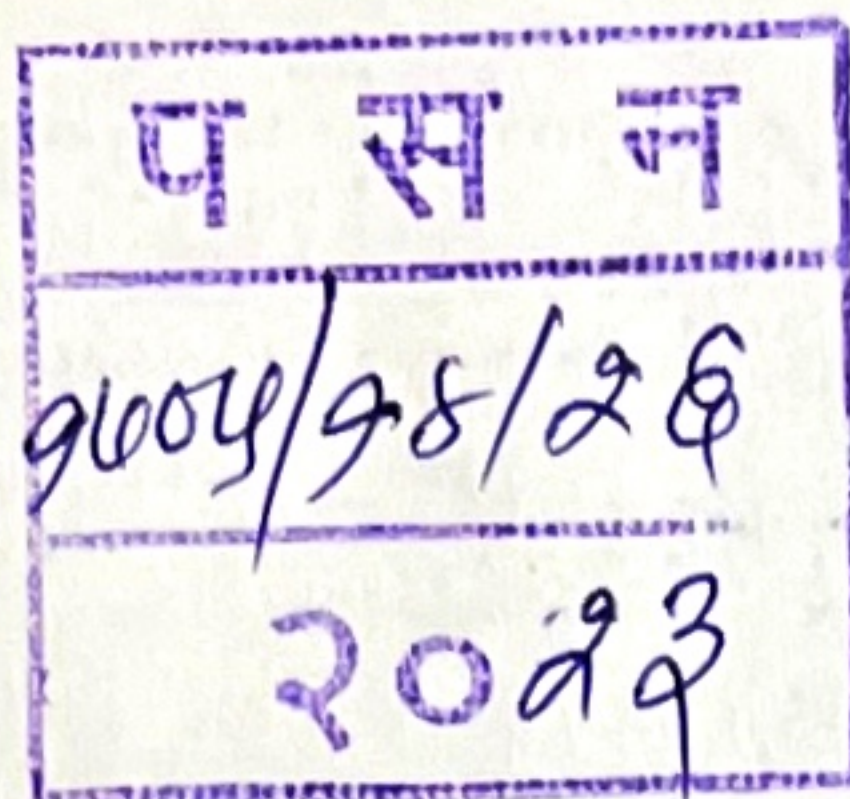 प स न
१७०५/१४/२६
२०२३